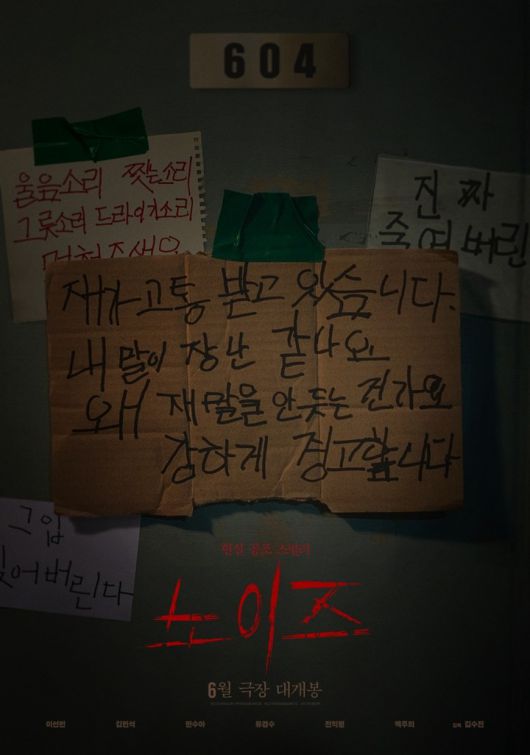 604
울음소리 찢는소리
그릇소리 드라이기소리
멈춰주세요
진짜
죽여버린
재가 고통 받고 있습니다.
내 말이 장난 같나요
왜 재 말을 안 듣는 건가요
강하게 경고합니다
그입
찢어버린다
현실 공포 스릴러
노이즈
6월 극장 대개봉
이선빈 김민석 한수아 류경수 전익령 백주희 감독 김수진